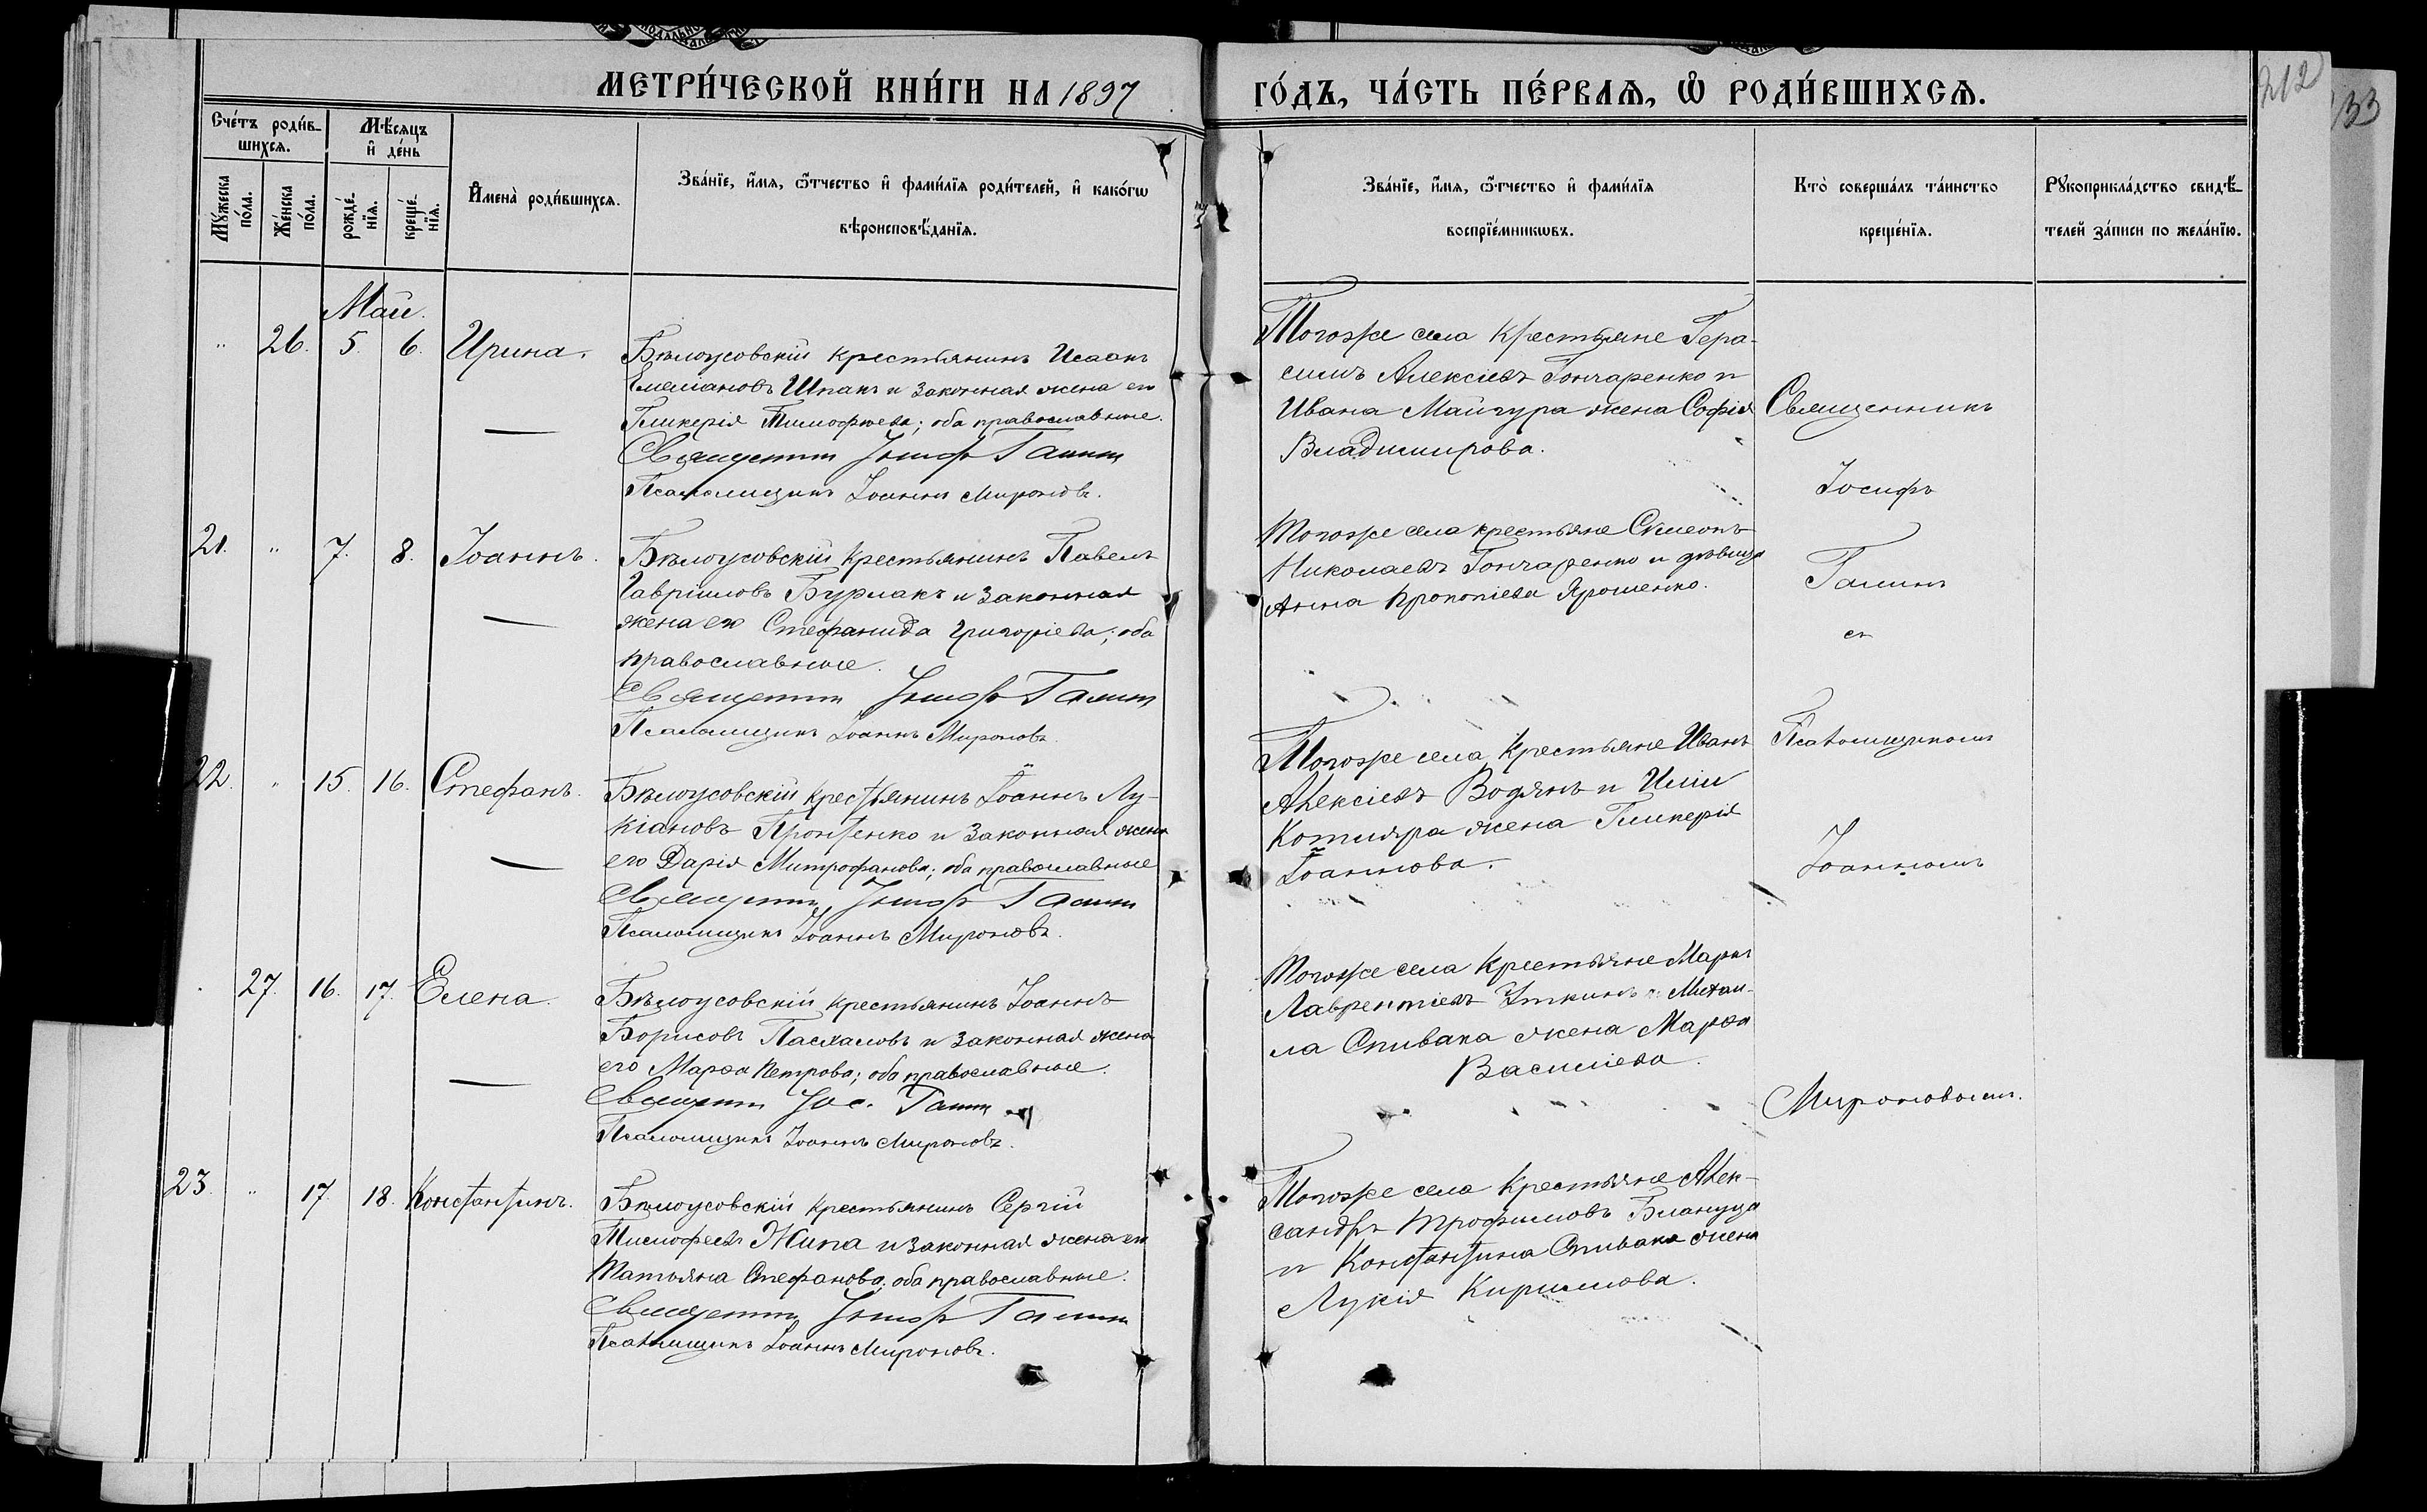 МЕТРИ́ЧЕСКОЙ КНИ́ГИ НА 1897
ГО́ДЪ, ЧА́СТЬ ПЕ́РВАѦ, Ѽ РОДИ́ВШИХСѦ.
212
133
Сче́тъ роди́в-
шихсѧ.
Мѣ́сѧцъ
и҆ де́нь
Мꙋ́жеска
по́ла.
Же́нска
по́ла.
рожде́-
нїѧ.
креще́-
нїѧ.
И҆мена̀ роди́вшихсѧ.
Зва́нїе, и҆́мѧ, ѻ҆́тчество и҆ фами́лїѧ роди́телей, и҆ како́гѡ
вѣроисповѣ́данїѧ.
Зва́нїе, и҆́мѧ, ѻ҆́тчество и҆ фами́лїѧ
воспрїе́мникѡвъ.
Кто̀ соверша́лъ та́инство
креще́нїѧ.
Рꙋкоприкла́дство свидѣ́-
телей за́писи по жела́нїю.
Май.
" 26. 5. 6. Ирина.
Бѣлоусовскій крестьянинъ Исаакъ
Емеліановъ Шпакъ и законная жена его
Гликерія Тимофѣева; оба православные.
Священникъ Іосифъ Галинъ
Псаломщикъ Іоаннъ Мироновъ.
Тогоже села крестьяне Гера-
симъ Алексіевъ Гончаренко и
Ивана Майгура жена Софія
Владимирова.
Священникъ
Іосифъ
Галинъ
съ
Псаломщикомъ
Іоанномъ
Мироновымъ.
21. " 7. 8. Іоаннъ.
Бѣлоусовскій крестьянинъ Павелъ
Гавріиловъ Бурлакъ и законная
жена его Стефанида Григоріева; оба
православные.
Священникъ Іосифъ Галинъ
Псаломщикъ Іоаннъ Мироновъ.
Тогоже села крестьяне Симеонъ
Николаевъ Гончаренко и дѣвица
Анна Прокопіева Ярошенко.
22. " 15. 16. Стефанъ.
Бѣлоусовскій крестьянинъ Іоаннъ Лу-
кіановъ Пронченко и законная жена
его Дарія Митрофанова; оба православные
Священникъ Іосифъ Галинъ
Псаломщикъ Іоаннъ Мироновъ.
Тогоже села крестьяне Иванъ
Алексіевъ Водянъ и Иліи
Котляра жена Гликерія
Іоаннова.
27. 16. 17. Елена.
Бѣлоусовскій крестьянинъ Іоаннъ
Борисовъ Пасхаловъ и законная жена
его Марѳа Петрова; оба православные.
Священникъ Іос. Галинъ
Псаломщикъ Іоаннъ Мироновъ.
Тогоже села крестьяне Маркъ
Лаврентіевъ Уткинъ и Михаи-
ла Спивака жена Марѳа
Василіева.
23. " 17. 18. Константинъ.
Бѣлоусовскій крестьянинъ Сергій
Тимофеевъ Жипа и законная жена его
Татьяна Стефанова; оба православные.
Священникъ Іосифъ Галинъ
Псаломщикъ Іоаннъ Мироновъ.
Тогоже села крестьяне Алек-
сандръ Трофимовъ
и Константина Спивака жена
Лукія Кириллова.